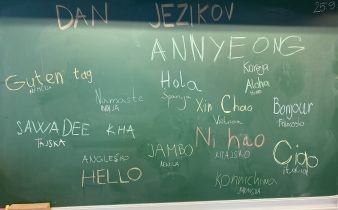 DAN JEZIKOV
25.9
ANNYEONG
Koreja
Guten tag
NEMČIJA
Hola
Španija
Aloha
Namaste
INDIJA
Xin Chao
Vietnam
Bonjour
Francosko
SAWADEE KHA
TAJSKA
Ni hao
KITAJSKO
JAMBO
KENIJA
Ciao
ANGLEŠKO
HELLO
KONNICHIWA
JAPONSKA